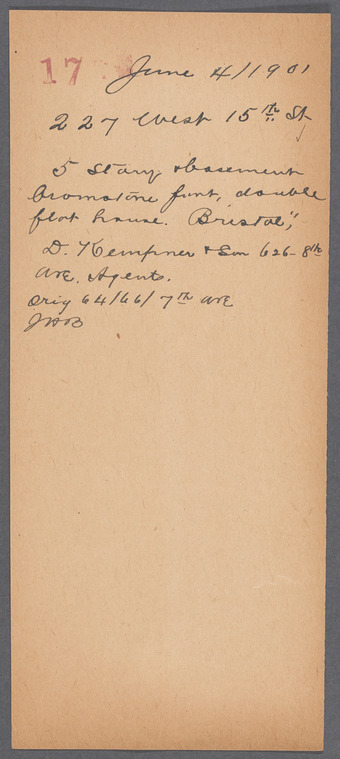 17 June 4/1901
227 West 15th St
5 Story & basement
bromstone font, double
flat house. "Bristol",
D. Kempner & Son 626-8th
Ave. Agents.
orig 64/66/7th Ave